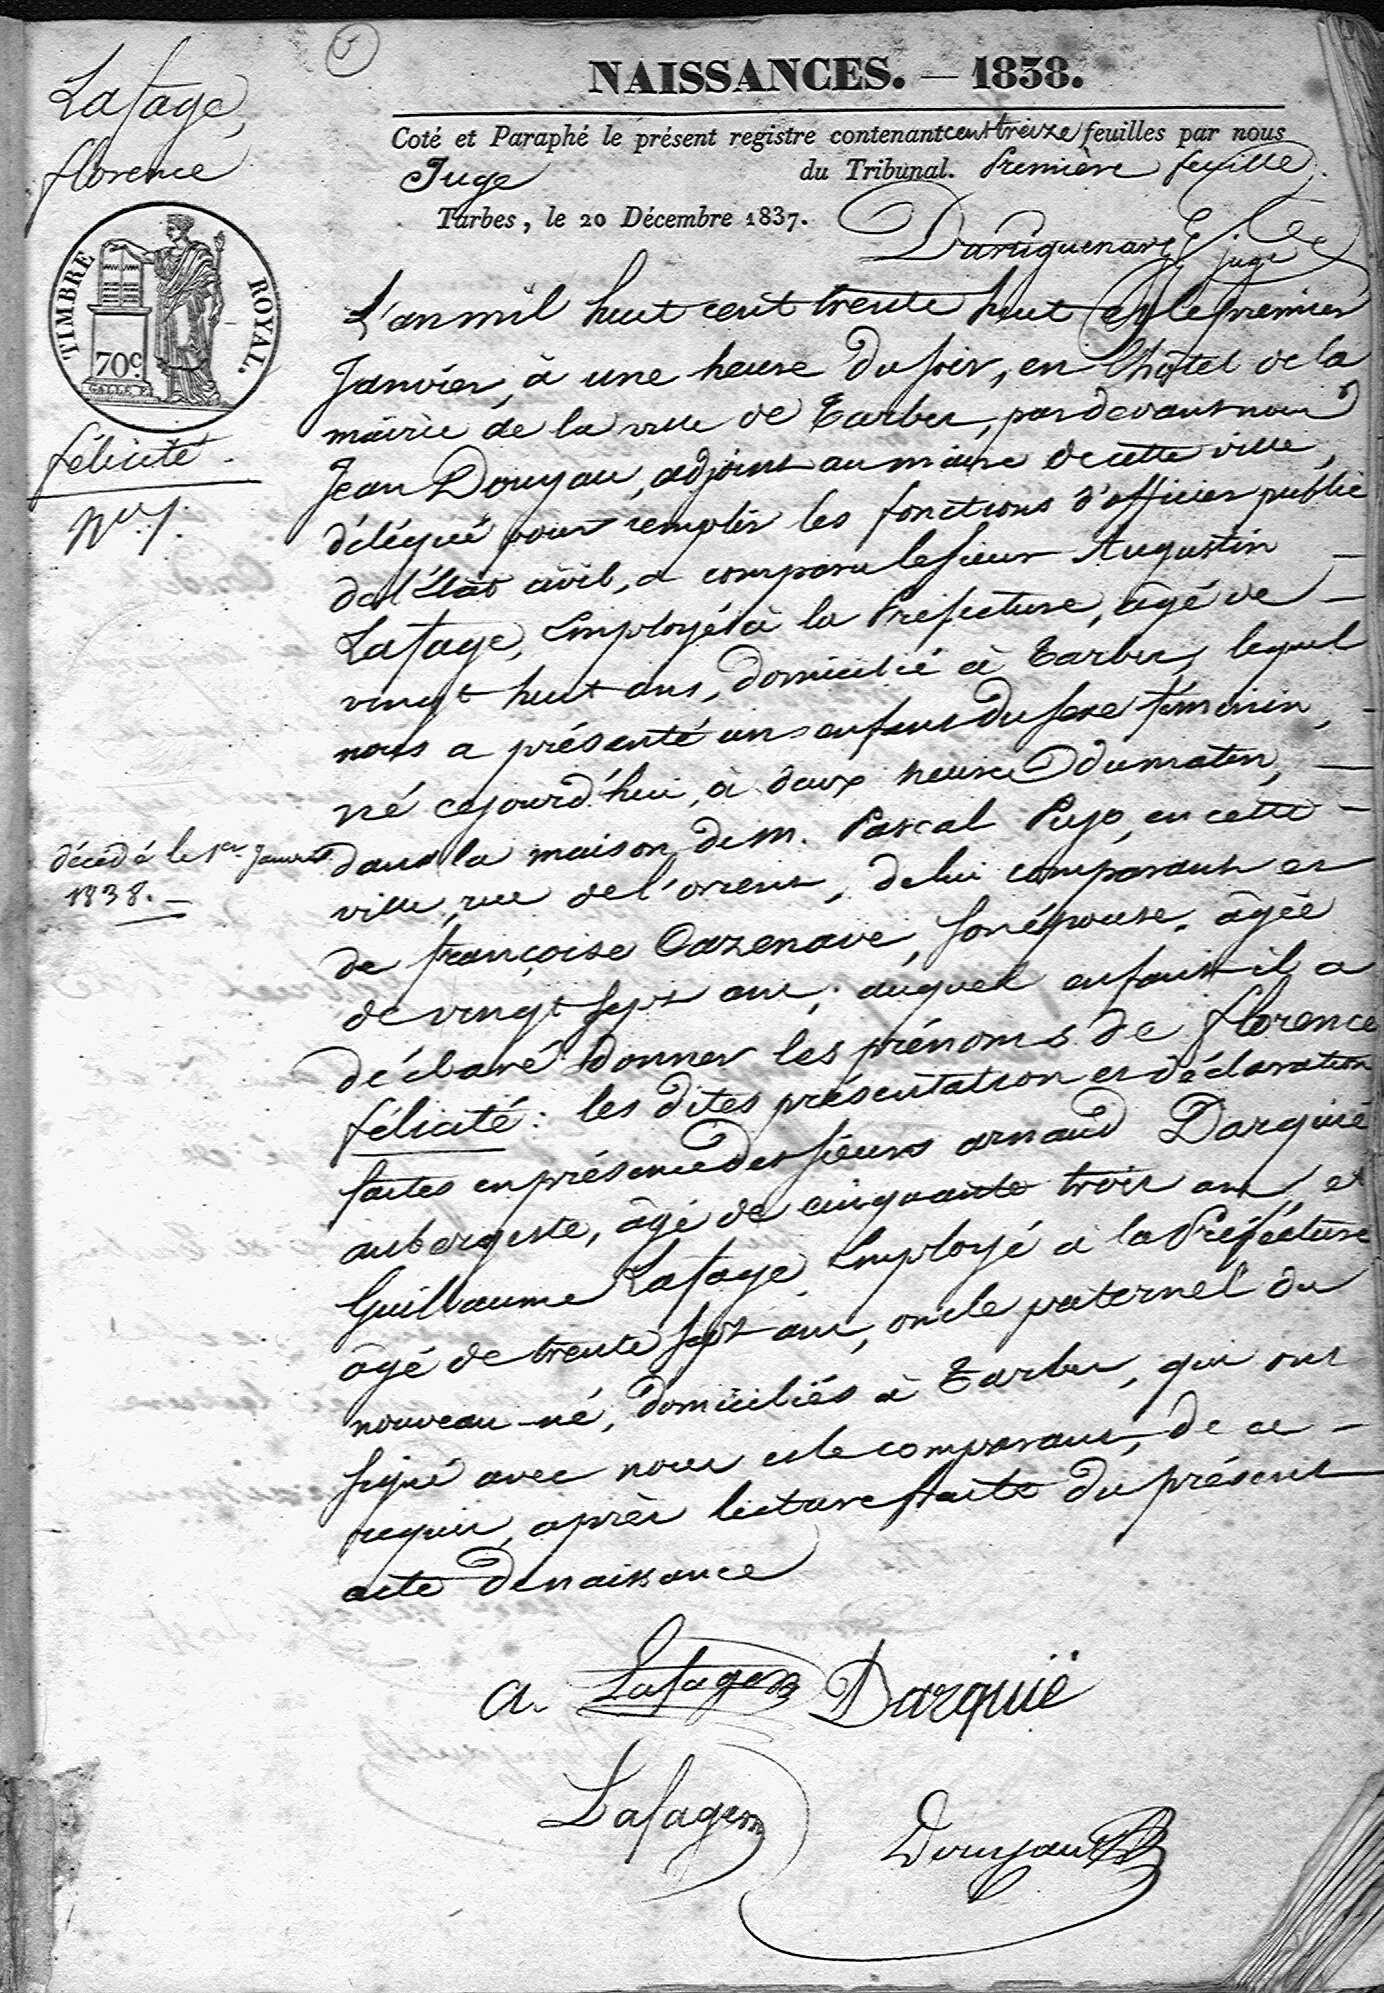 NAISSANCES. — 1838.
Coté et Paraphé le présent registre contenant cent treize feuilles par nous
Juge du Tribunal. Première feuille.
Tarbes, le 20 Décembre 1837.
juge
Lafage,
florence
TIMBRE ROYAL.
70c.
félicité.
décédé le 1er Janvier
1838. —
L'an mil huit cent trente huit et le premier
Janvier, à une heure du soir, en l'hôtel de la
mairie de la ville de Tarbes, pardevant nous
Jean Douyau, adjoint au maire de cette ville,
délégué pour remplir les fonctions d'officier public
de l'état civil, a comparu le sieur Augustin —
Lafage, Employé à la Préfecture, âgé de —
vingt huit ans, domicilié à Tarbes, lequel
nous a présenté un enfant du sexe féminin, —
né cejourd'hui, à deux heures du matin, —
dans la maison de m. Pascal Pujo, en cette —
ville, rue de l'orient, de lui comparant et
de françoise Cazenave, son épouse, âgée
de vingt sept ans; auquel enfant il a
déclaré donner les prénoms de florence
félicité: les dites présentation et déclaration
faites en présence des sieurs arnaud Darquié
aubergiste, âgé de cinquante trois ans, et
Guillaume Lafage, Employé à la Préfecture
âgé de trente sept ans, oncle paternel du
nouveau-né, domiciliés à Tarbes, qui ont
signé avec nous et le comparant, de ce —
requis, après lecture faite du présent
acte de naissance
a. Lafage Darquié
Lafage
Douyau